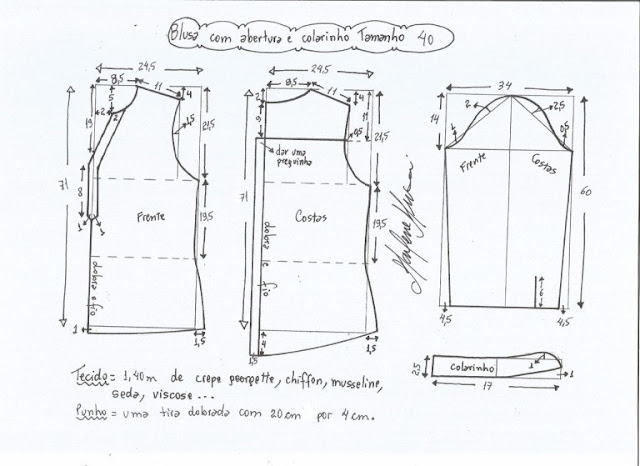 Blusa com abertura e colarinho Tamanho 40
24,5
8,5
11
4
5
2
2
19
1,5
21,5
8
71
1
1
Frente
19,5
dobra e fio
1
1,5
24,5
8,5
11
4
2
9
11
0,5
21,5
dar uma preguinha
71
Costas
19,5
dobra e fio
4
1,5
1,5
34
14
2
2,5
1
0,5
Frente
Costas
60
6
4,5
4,5
2,5
colarinho
1
1
17
Tecido = 1,40m de crepe georgette, chiffon, musseline,
seda, viscose...
Punho = uma tira dobrada com 20cm por 4cm.